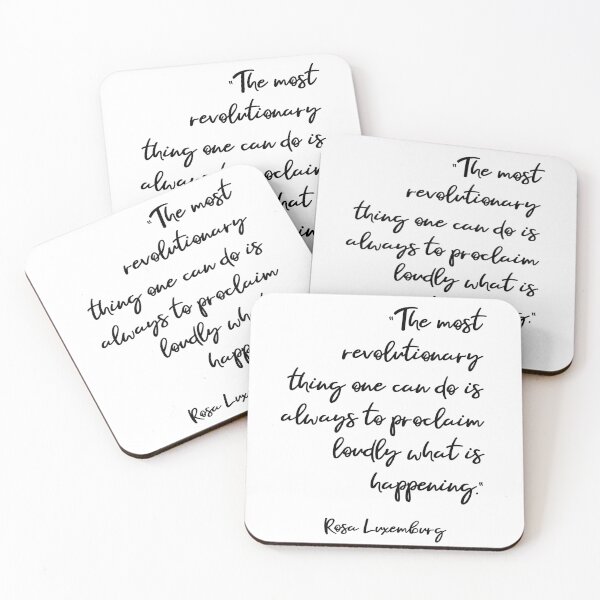 "The most
revolutionary
thing one can do is
always
what
"The most
revolutionary
thing one can do is
always to proclaim
loudly what is
"The most
revolutionary
thing one can do is
always to proclaim
loudly
Rosa
"The most
revolutionary
thing one can do is
always to proclaim
loudly what is
happening."
Rosa Luxemburg